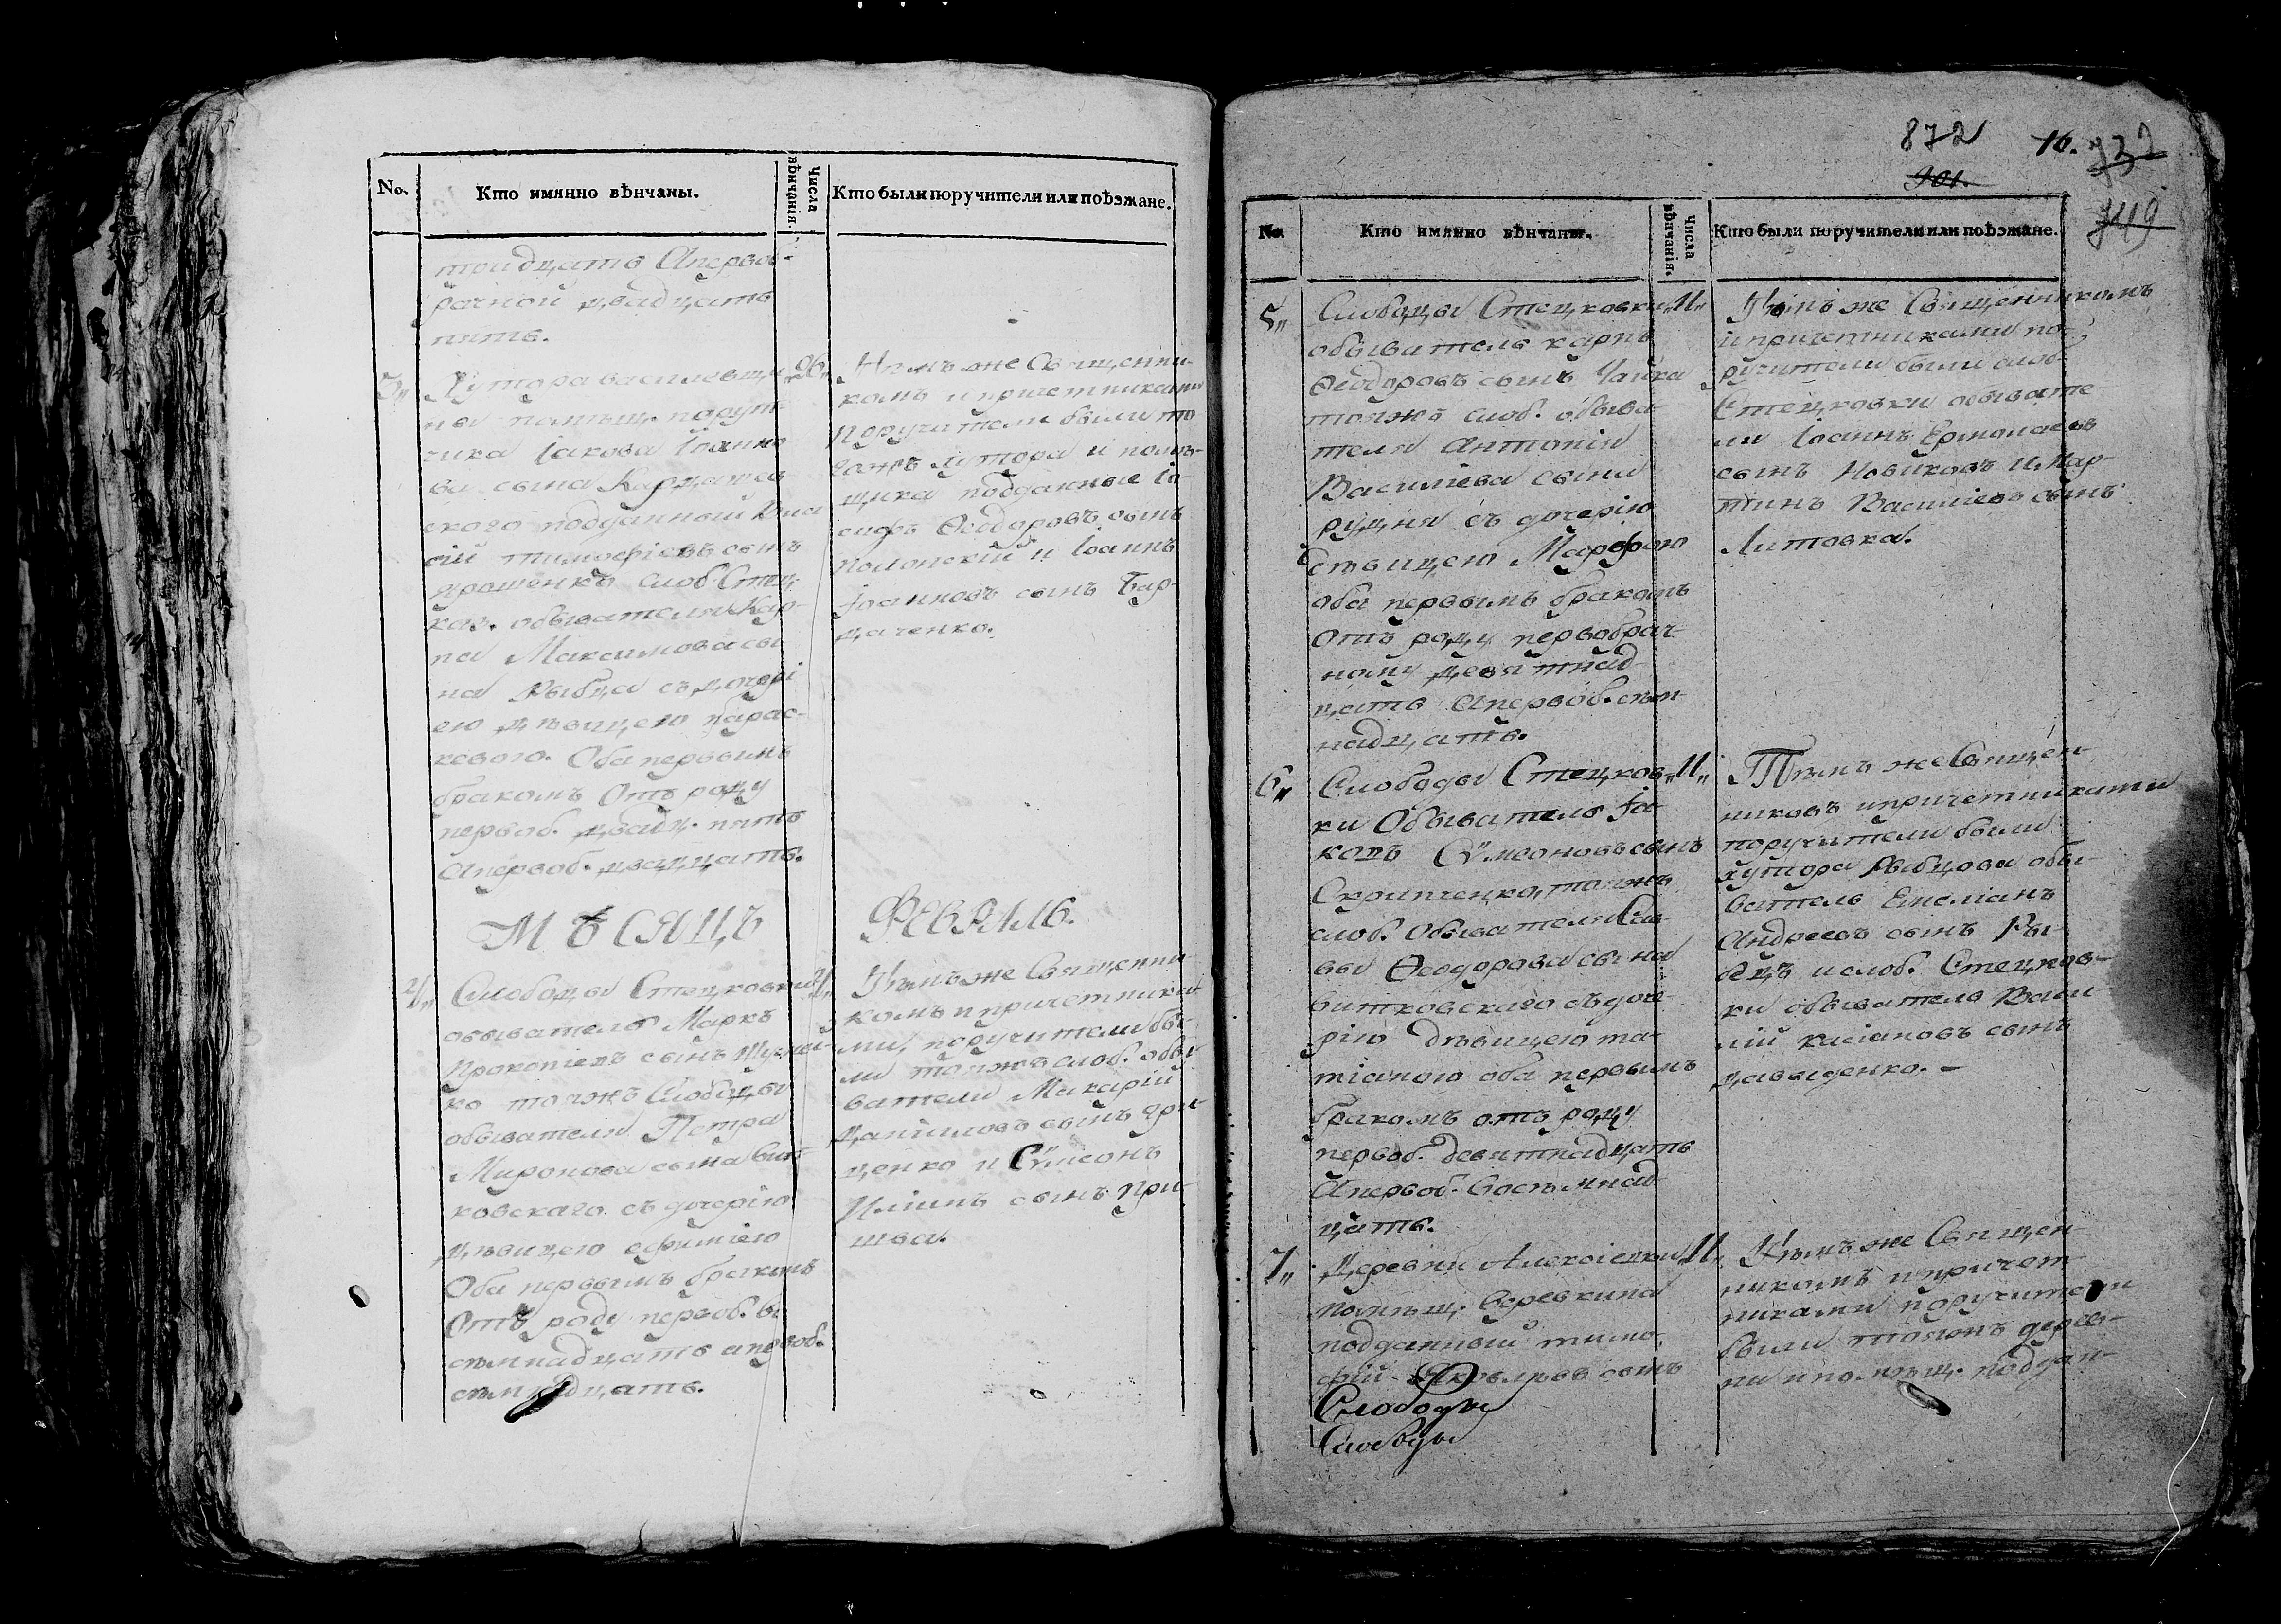 No.
Кто имянно вѣнчаны.
Числа вѣнчанія.
Кто были поручители или поѣзжане.
тридцать Аперво-
рачной двадцать
пять.
3„ Хутора василевщи-
ны помѣщ. поруч-
чика Іакова Іоанно
ва сына Кардашев
ского подданный
сій тимофіевъ сынъ
ярошенко слоб. Стец-
ков. обывателя Кар-
па Максимова сы
на Рыбца съ дочері
ею дѣвицею парас-
кевою. Оба первымъ
бракомъ Отъ роду
первоб. двадц. пять
Апервоб. двадцать.
„26„
Тѣмъ же Священни-
комъ и причетниками
поручители были то
гожъ хутора и помѣ-
щика подданные Іо
сифъ Ѳеодоровъ сынъ
полонскій и Іоаннъ
Іоанновъ сынъ Бар-
даченко.
МѢСЯЦЪ ФЕВРАЛЬ.
4„ Слободы Стецковки
обыватель Маркъ
Прокопіевъ сынъ
ко тояжъ Слободы
обывателя Петра
Миронова сына Вит
ковского съ дочерію
дѣвицею ефиміею
Оба первымъ бракомъ
Отъ роду первоб. во
семнадцать а первоб.
семнадцать.
Тѣмъ же Священни
комъ и причетника-
ми, поручители бы-
ли тояжъ слоб. обы-
ватели Макарій
Даниловъ сынъ гри-
ценко и Сѵмеонъ
Иліинъ сынъ при-
шва.
872
901.
16.
732
749
No.
Кто имянно вѣнчаны.
Числа вѣнчанія.
Кто были поручители или поѣзжане.
5„ Слободы Стецковки
обыватель карпъ
Ѳеодоровъ сынъ Чайка
тояжъ слоб. обыва-
теля Антонія
Василіева сына
рудня съ дочерію
дѣвицею Марфою
оба первымъ бракомъ
Отъ роду первобрач-
ному девятнад-
цать Апервоб. сем-
надцать.
„11„
Тѣмъ же Священникомъ
и причетниками по-
ручители были слоб-
Стецковки обывате
ли Іоаннъ Ермолаевъ
сынъ Новиковъ и Мар-
тинъ Василіевъ сынъ
Литовка.
6„ Слободы Стецков-
ки Обыватель Іа-
ковъ Сѵмеоновъ сынъ
Скрипченко, тояжъ
слоб. Обывателя Сав-
вы Ѳеодорова сына
витковского съ доче-
рію дѣвицею та-
тіаною оба первымъ
бракомъ отъ роду
первоб. девятнадцать
Апервоб. восемнад
цать.
„11„
Тѣмъ же Священ-
никомъ и причетниками
поручители были
хутора Рыбцова обы-
ватель Емеліанъ
Андреевъ сынъ Ры-
бецъ и слоб. Стецков-
ки обыватель Васи-
лій касіановъ сынъ
давыденко.
7„ Деревни Алексіевки
помѣщ. Веревкина
подданный тимо
фій Яковлевъ сынъ
Слободы
Слободы
„11„
Тѣмъ же Священ-
никомъ и причет-
никами поручители
были тояжъ дерев-
ни и помѣщ. поддан-